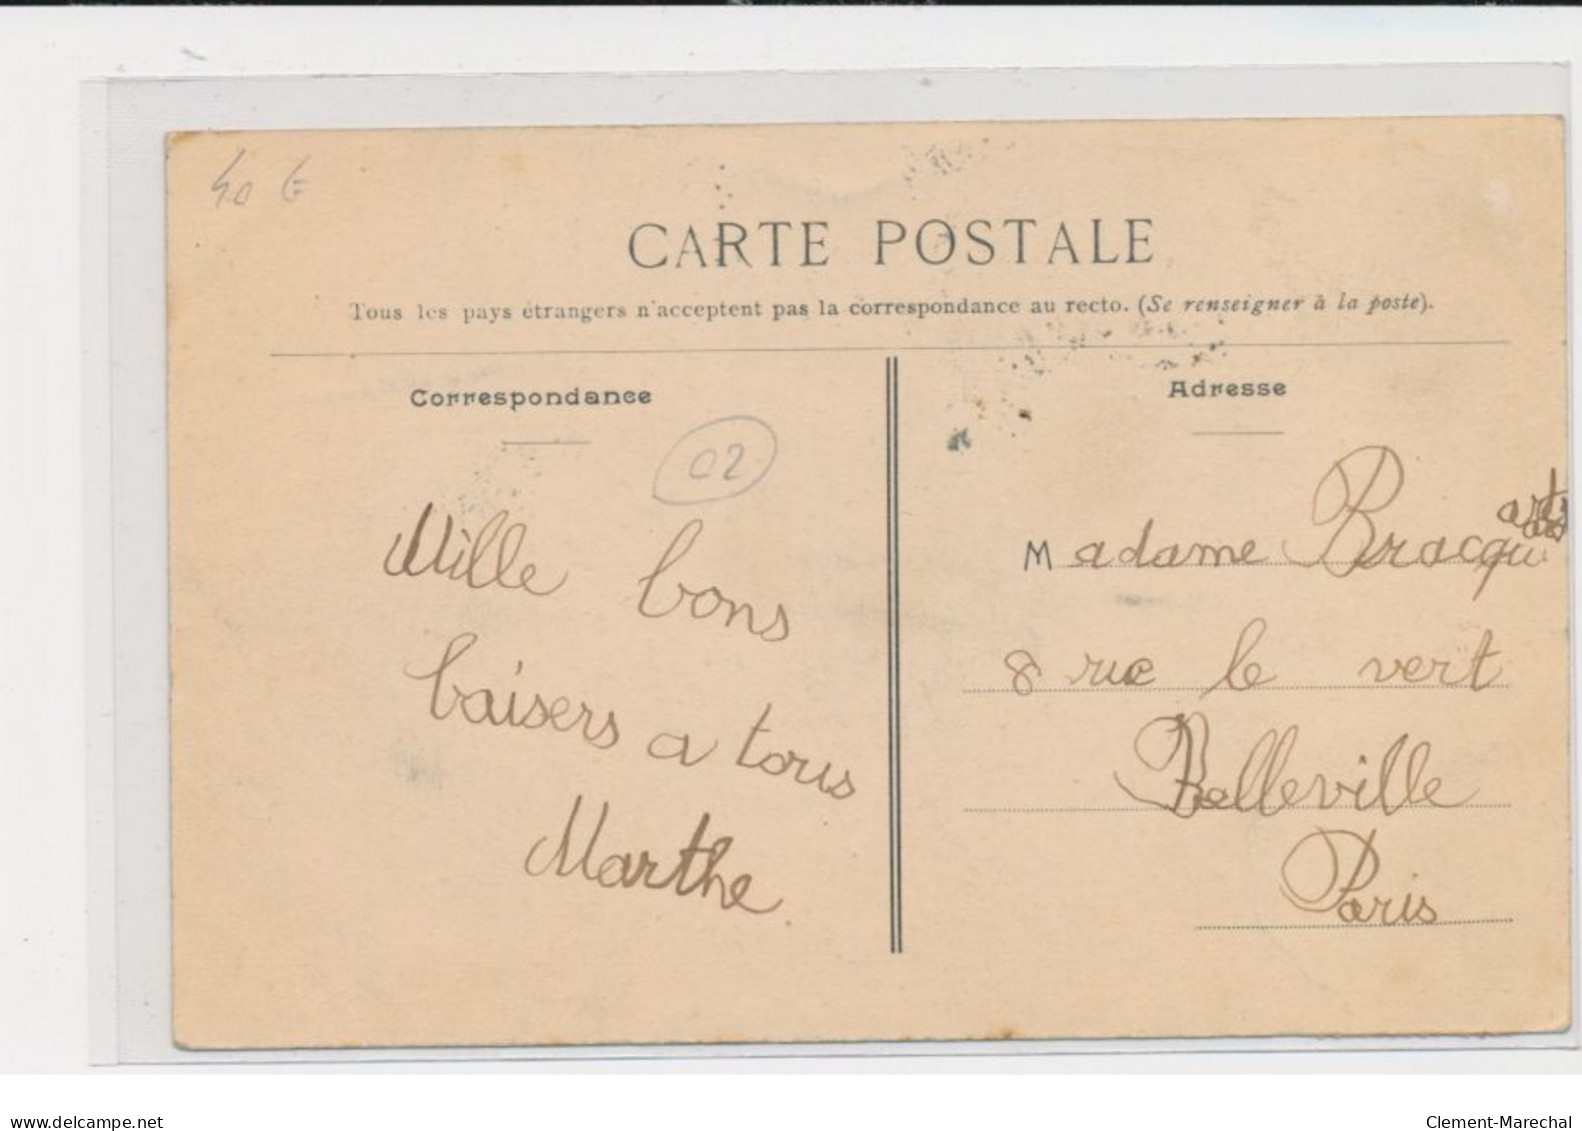 40 €
CARTE POSTALE
Tous les pays étrangers n'acceptent pas la correspondance au recto. (Se renseigner à la poste).
Correspondance
Adresse
02
Mille bons
baisers a tous
Marthe
Madame Bracqu
8 rue le vert
Belleville
Paris
www.delcampe.net
Clement-Marechal